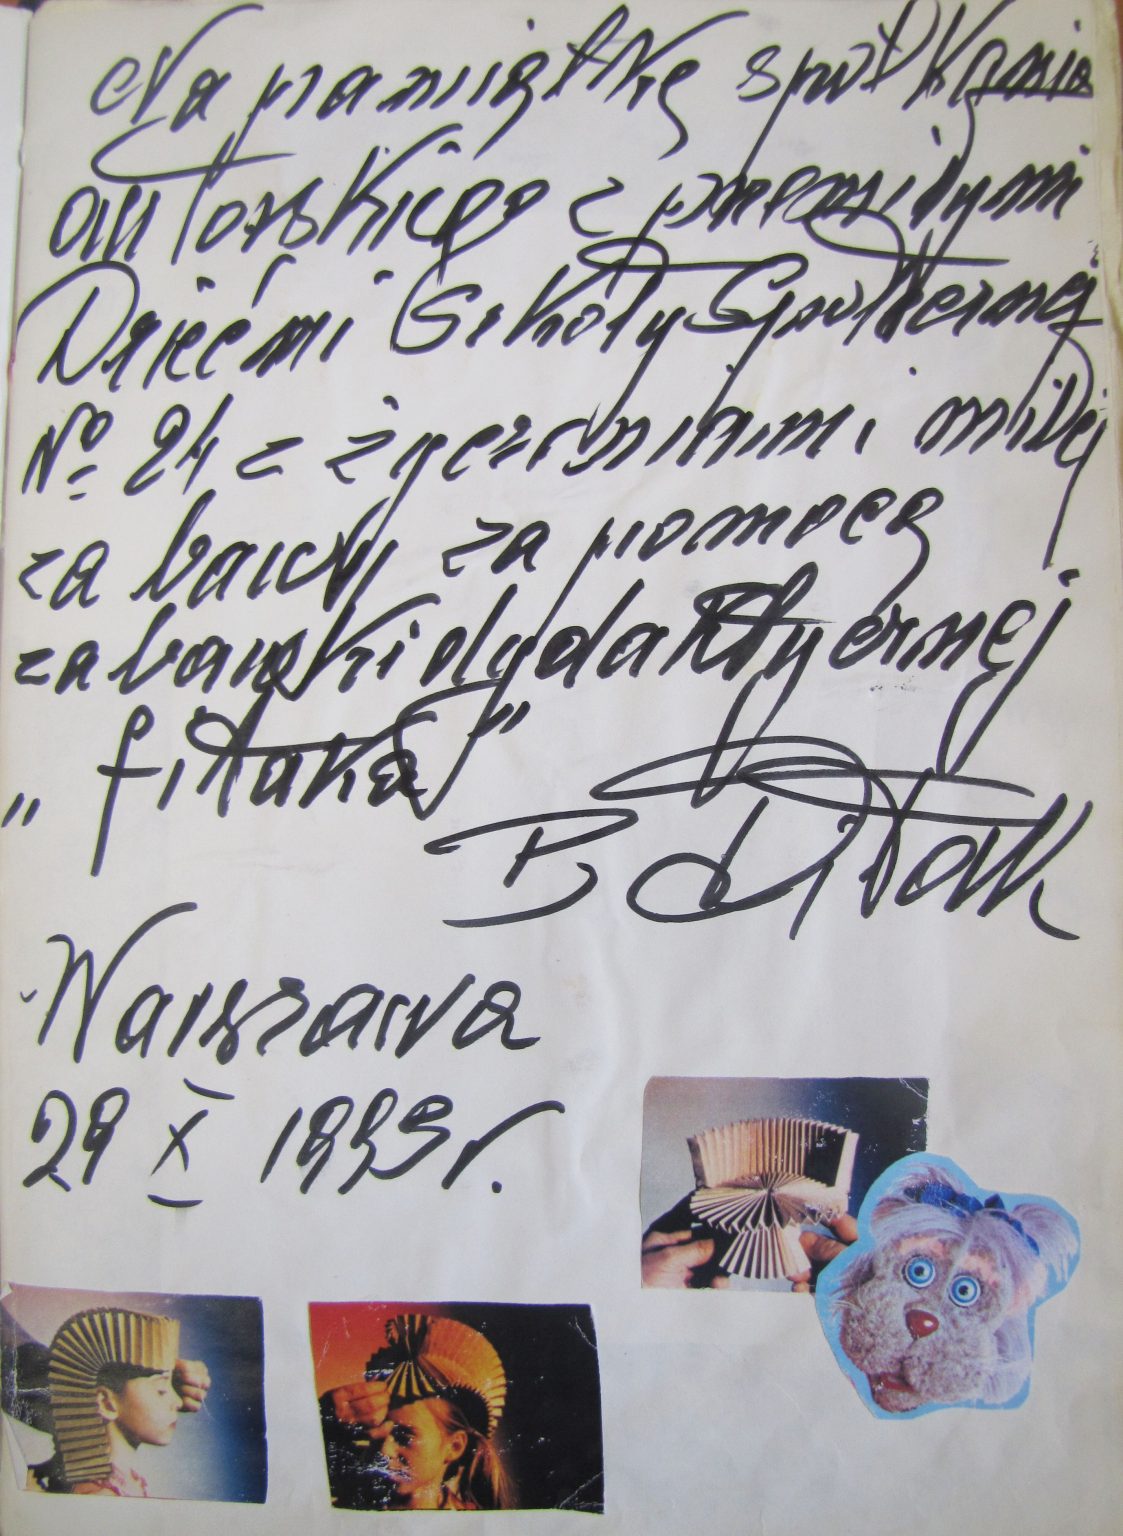 Na pamiątkę spotkania
autorskiego z przemiłymi
Dziećmi Szkoły Społecznej
№ 24 z życzeniami miłej
zabawy za pomocą
zabawki dydaktycznej
„fitaka”
Warszawa
29 X 1993 r.